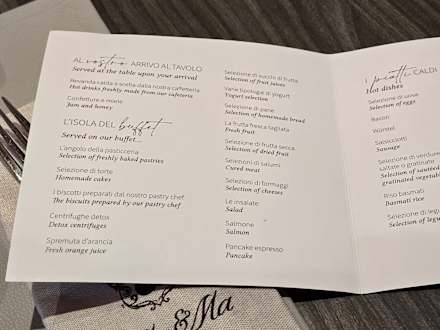 AL vostro ARRIVO AL TAVOLO
Served at the table upon your arrival
Bevanda calda a scelta dalla nostra caffetteria
Hot drinks freshly made from our cafeteria
Confetture e miele
Jam and honey
L'ISOLA DEL buffet
Served on our buffet...
L'angolo della pasticceria
Selection of freshly baked pastries
Selezione di torte
Homemade cakes
I biscotti preparati dal nostro pastry chef
The biscuits prepared by our pastry chef
Centrifughe detox
Detox centrifuges
Spremuta d'arancia
Fresh orange juice
Selezione di succhi di frutta
Selection of fruit juices
Varie tipologie di yogurt
Yogurt selection
Selezione di pane
Selection of homemade bread
La frutta fresca tagliata
Fresh fruit
Selezione di frutta secca
Selection of dried fruit
Selezioni di salumi
Cured meat
Selezioni di formaggi
Selection of cheeses
Le insalate
Salad
Salmone
Salmon
Pancake espresso
Pancake
I piatti CALDI
Hot dishes
Selezione di uova
Selection of eggs
Bacon
Würstel
Salsicciotti
Sausage
Selezione di verdure
saltate o gratinate
Selection of sautéed
gratinated vegetab
Riso basmati
Basmati rice
Selezione di leg
Selection of legu
& Ma